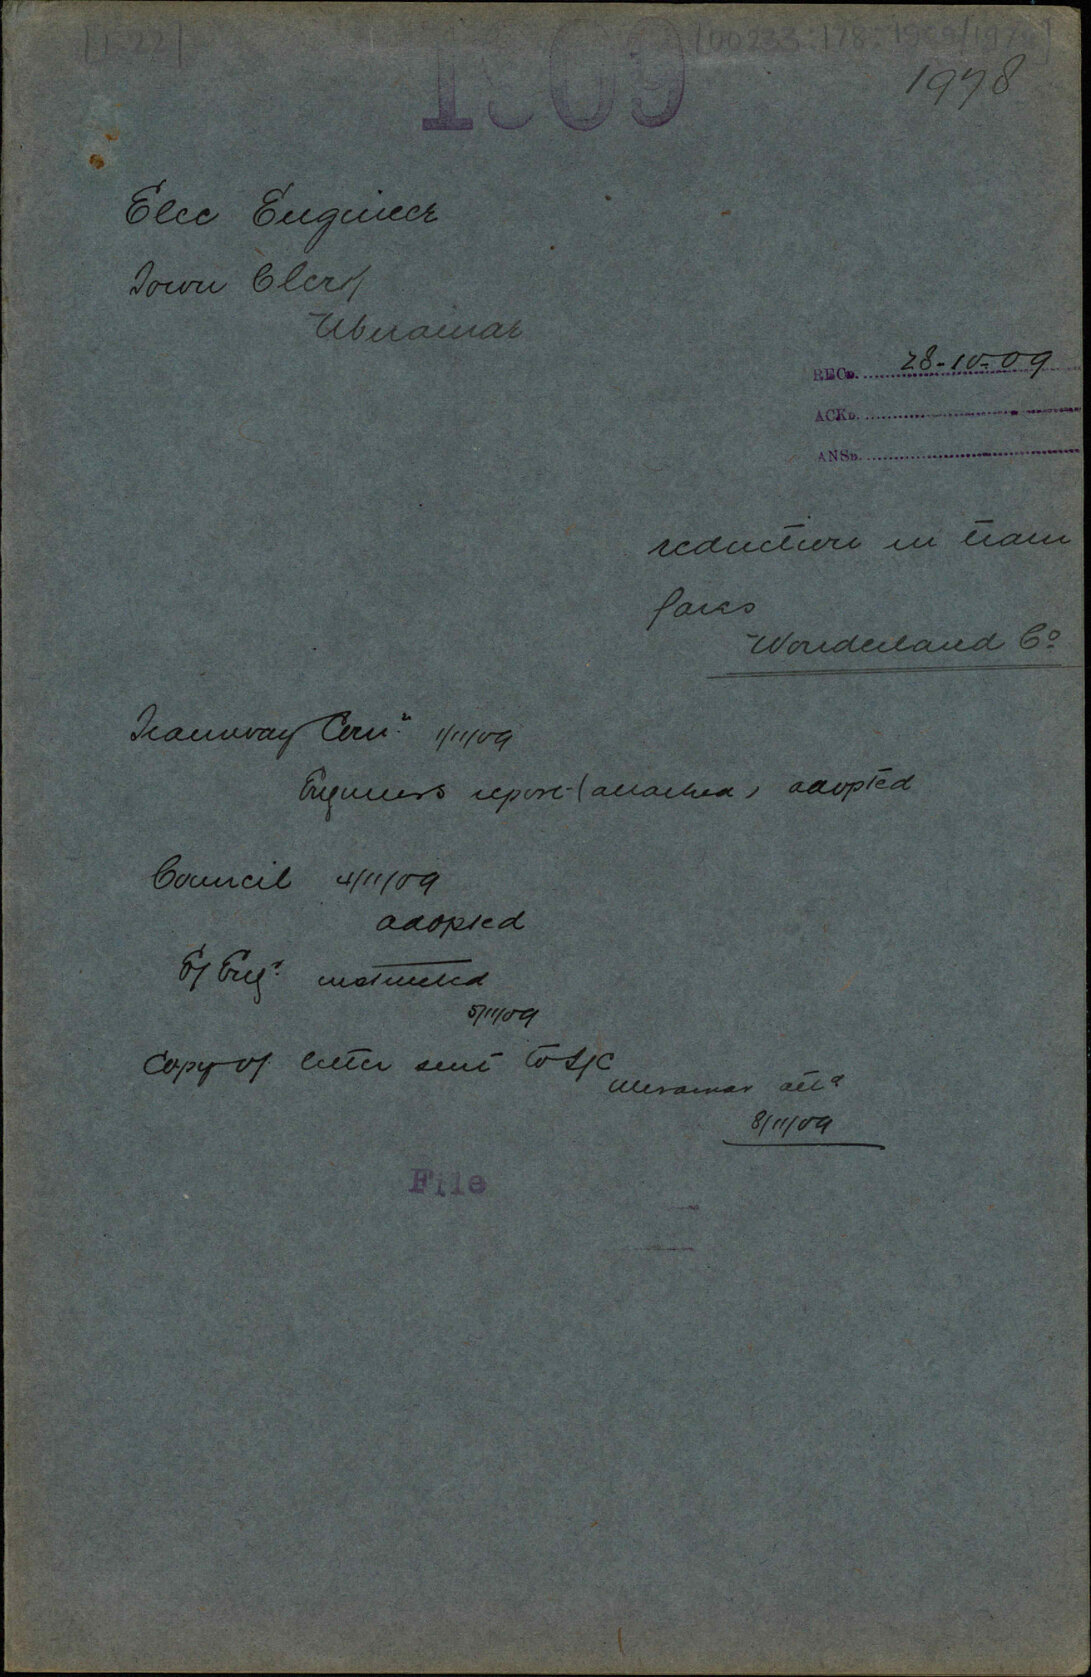 [1-22]
[00233:178:1909/1978]
1909
1978
Elec Engineer
Town Clerk
Miramar
RECD. 28-10-09
ACKD.
ANSD.
reduction in tram
fares
Wonderland Co
Tramway Com. 1/11/09
Engineers report (attached) adopted
Council 4/11/09
adopted
E/Engr instructed
5/11/09
Copy of letter sent to T/C
Miramar attd
8/11/09
File